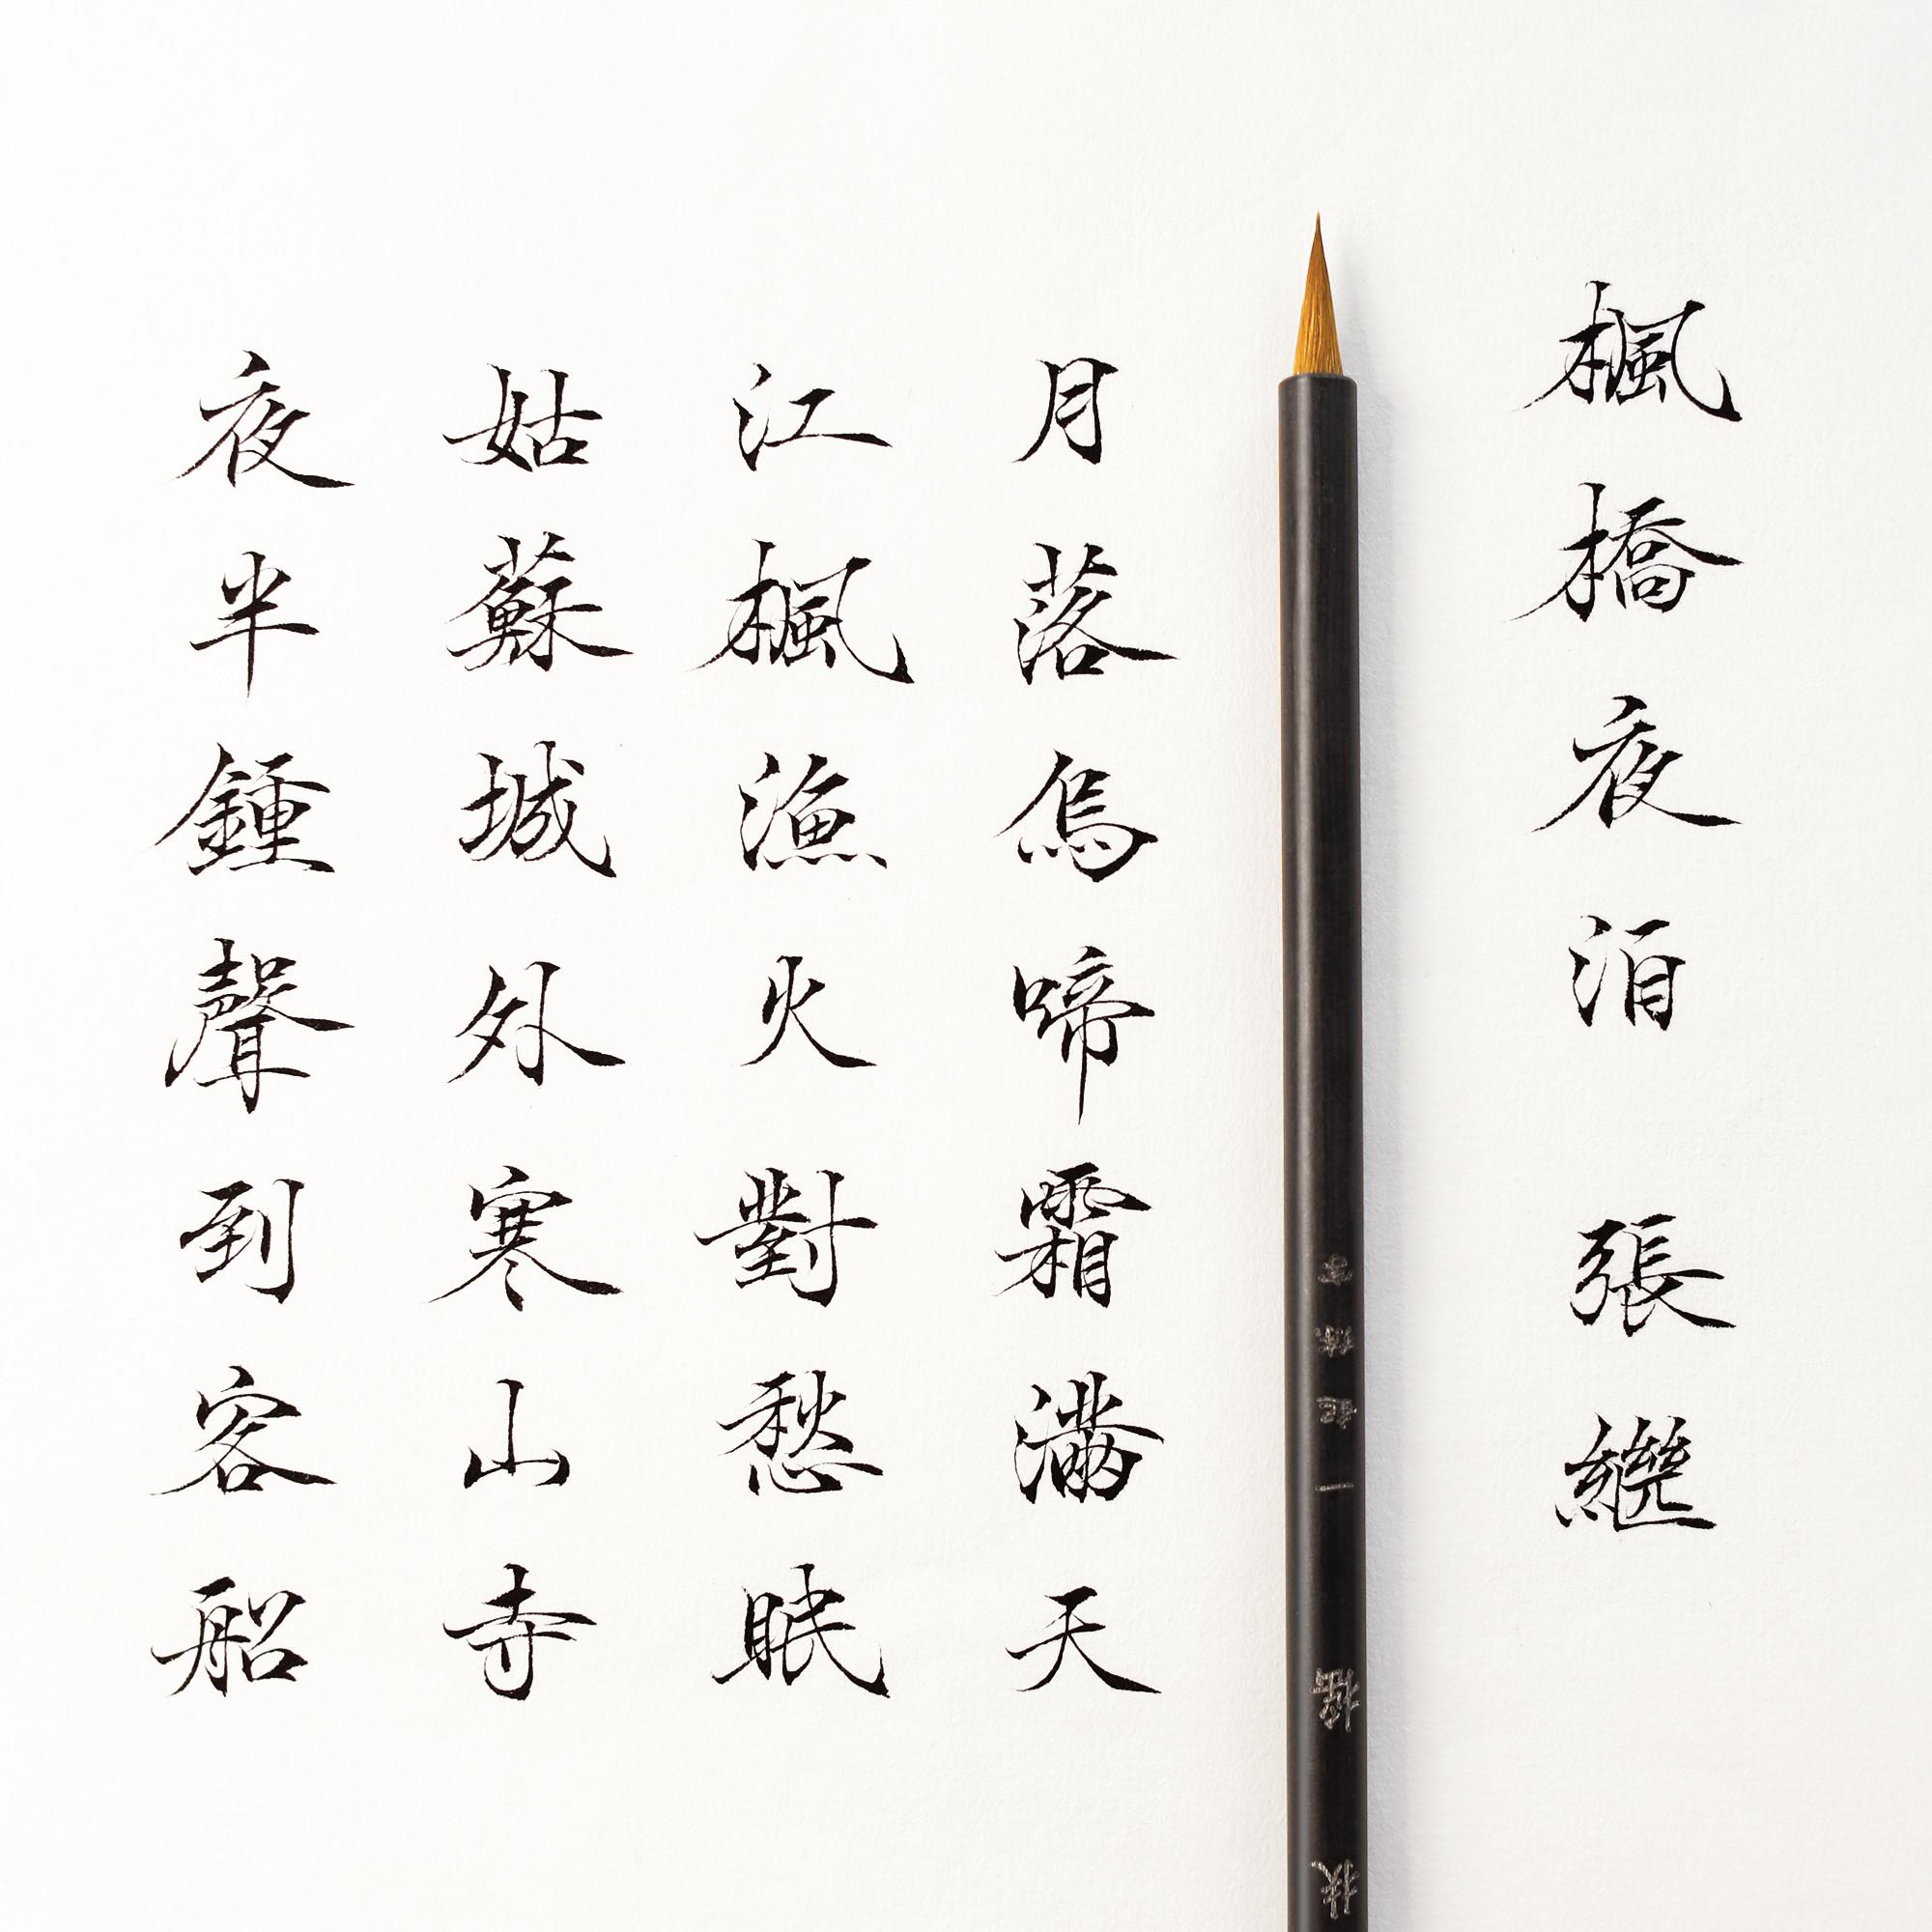 楓橋夜泊 張繼
月落烏啼霜滿天
江楓漁火對愁眠
姑蘇城外寒山寺
夜半鍾聲到客船